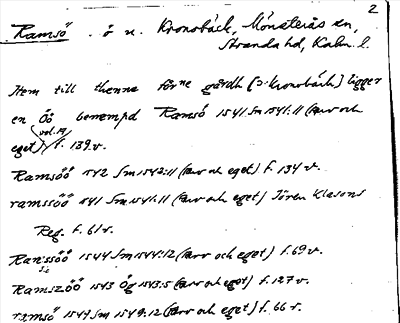 2
Ramsö . ö u. Kronobäck, Mönsterås sn,
Stranda hd, Kalm. l.
Item till thenna förne gårdh [ɔ: Kronobäck] ligger
en Öö benempd Ramsö 1541 Sm 1541:11 (Arv och
vol. 19
eget) f. 139.v.
Ramsöö 1542 Sm 1542:11 (Arv och eget) f. 134 v.
ramssöö 1541 Sm 1541:11 (Arv och eget) Jören Klasons
Reg. f. 61 v.
Ranssöö 1544 Sm 1544:12 (Arv och eget) f. 69 v.
sic
Ramszöö 1543 Ög 1543:5 (Arv och eget) f. 127 v.
ramsö 1549 Sm 1549:12 (Arv och eget) f. 66 r.